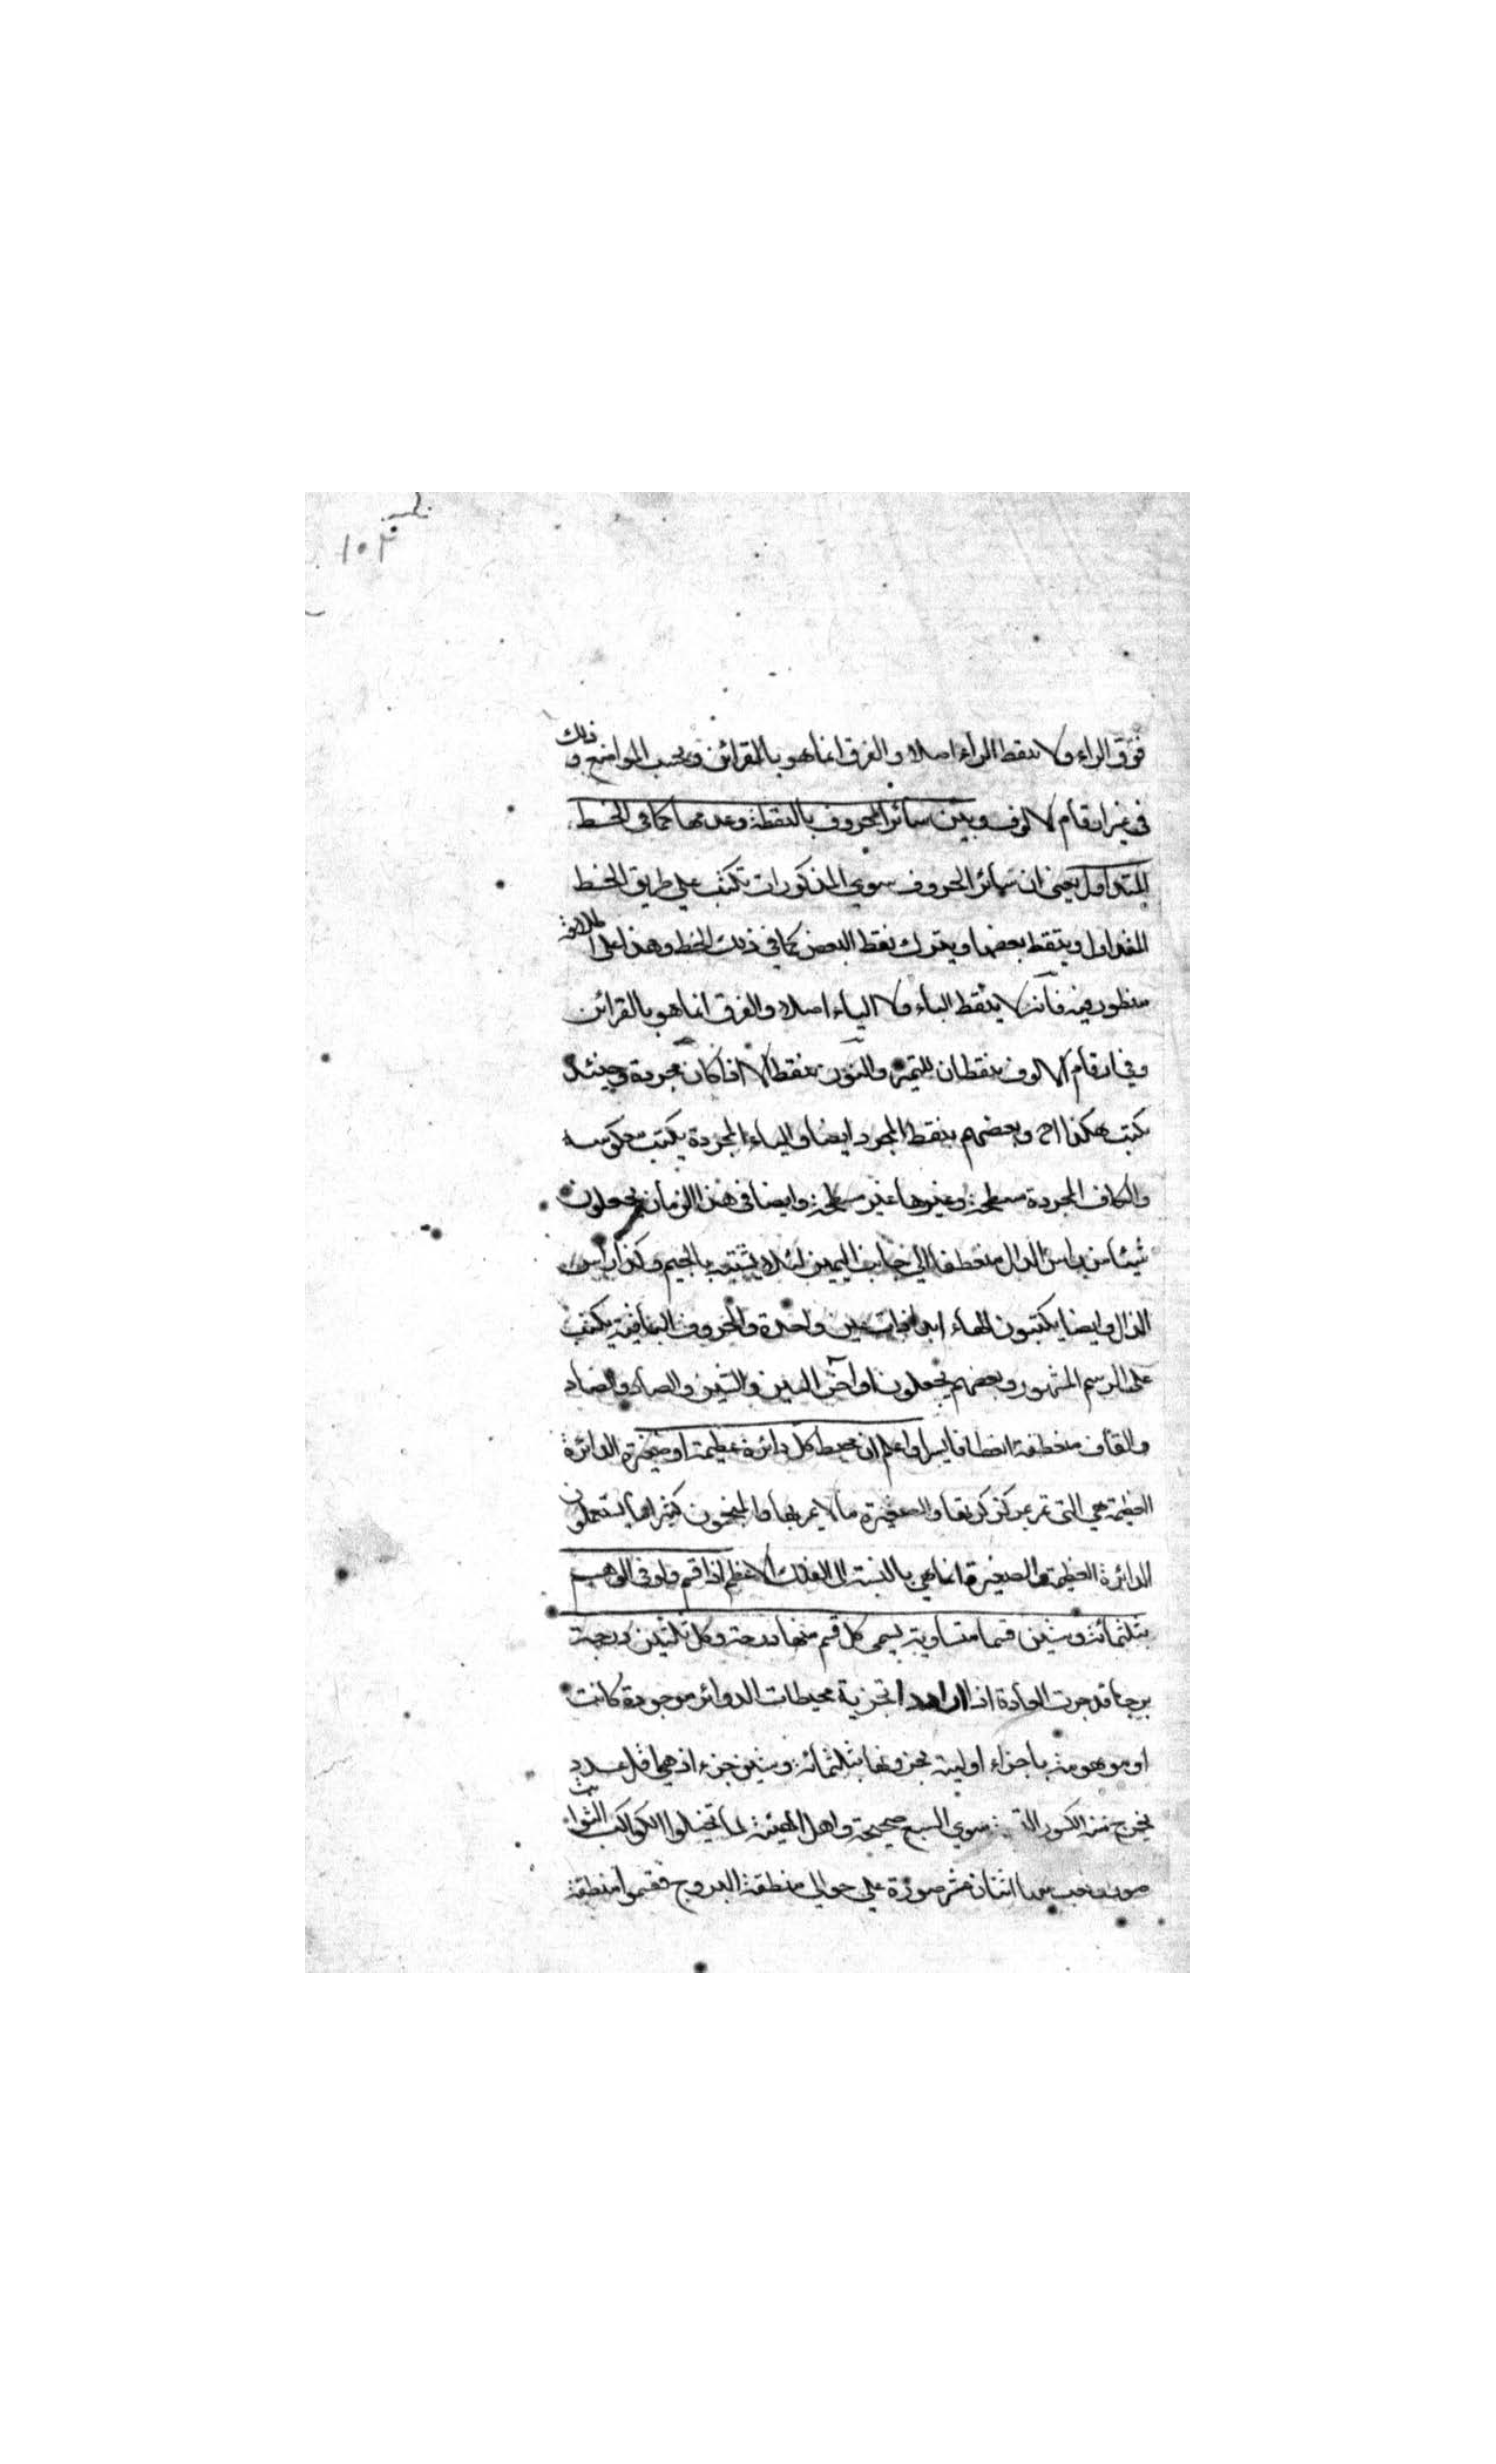 ١٠٣
فوق الراء ولا ينقط الراء اصلا والفرق انما هو بالقرائن وبحسب المواضع وذلك
في غير ارقام الالوف وبين سائر الحروف بالنقطة وعدمها كما في الخط
المتداول يعني ان سائر الحروف سوى المذكورات تكتب على طريق الخط
المتداول وينقط بعضها ويترك نقط البعض كما في ذلك الخط وهذا على اطلاقه
منظور فيه فانه لا ينقط الباء ولا الياء اصلا والفرق انما هو بالقرائن
وفي ارقام الالوف ينقطان البتة والنون ينقط الا اذا كان مجردة وحينئذ
يكتب هكذا وبعضهم ينقط المجرد ايضا والياء المجردة يكتب معكوسه
والكاف المجردة مسطحة وغيرها غير مسطحة وايضا في هذا الزمان يجعلون
شيئا من راس الدال منعطفا الى جانب اليمين لئلا يشتبه بالجيم وكذا راس
الذال وايضا يكتبون الهاء ابدا ذات عين واحدة والحروف الباقية يكتب
على الرسم المشهور وبعضهم يجعلون اواخر السين والشين والصاد والضاد
والقاف منعطفة انعطافا يسيرا واعلم ان محيط كل دائرة عظيمة او صغيرة الدائرة
العظيمة هي التي تمر بمركز كرتها والصغيرة ما لا يمر بها والمنجمون كثيرا ما يستعملون
الدائرة العظيمة والصغيرة انما هي بالنسبة الى الفلك الاعظم اذا قسم ولو في الوهم
بثلثمائة وستين قسما متساوية يسمى كل قسم منها درجة وكل ثلثين درجة
برجا قد جرت العادة اذا ارادوا تجزية محيطات الدوائر موجودة كانت
او موهومة باجزاء اولية يجزونها بثلثمائة وستين جزء اذ هي اقل عدد
يخرج منه الكسور سوى السبع صحيحة واهل الهيئة لما تخيلوا الكواكب الثوابت
اثنتا عشر صورة على حوالي منطقة البروج فقسموا منطقة